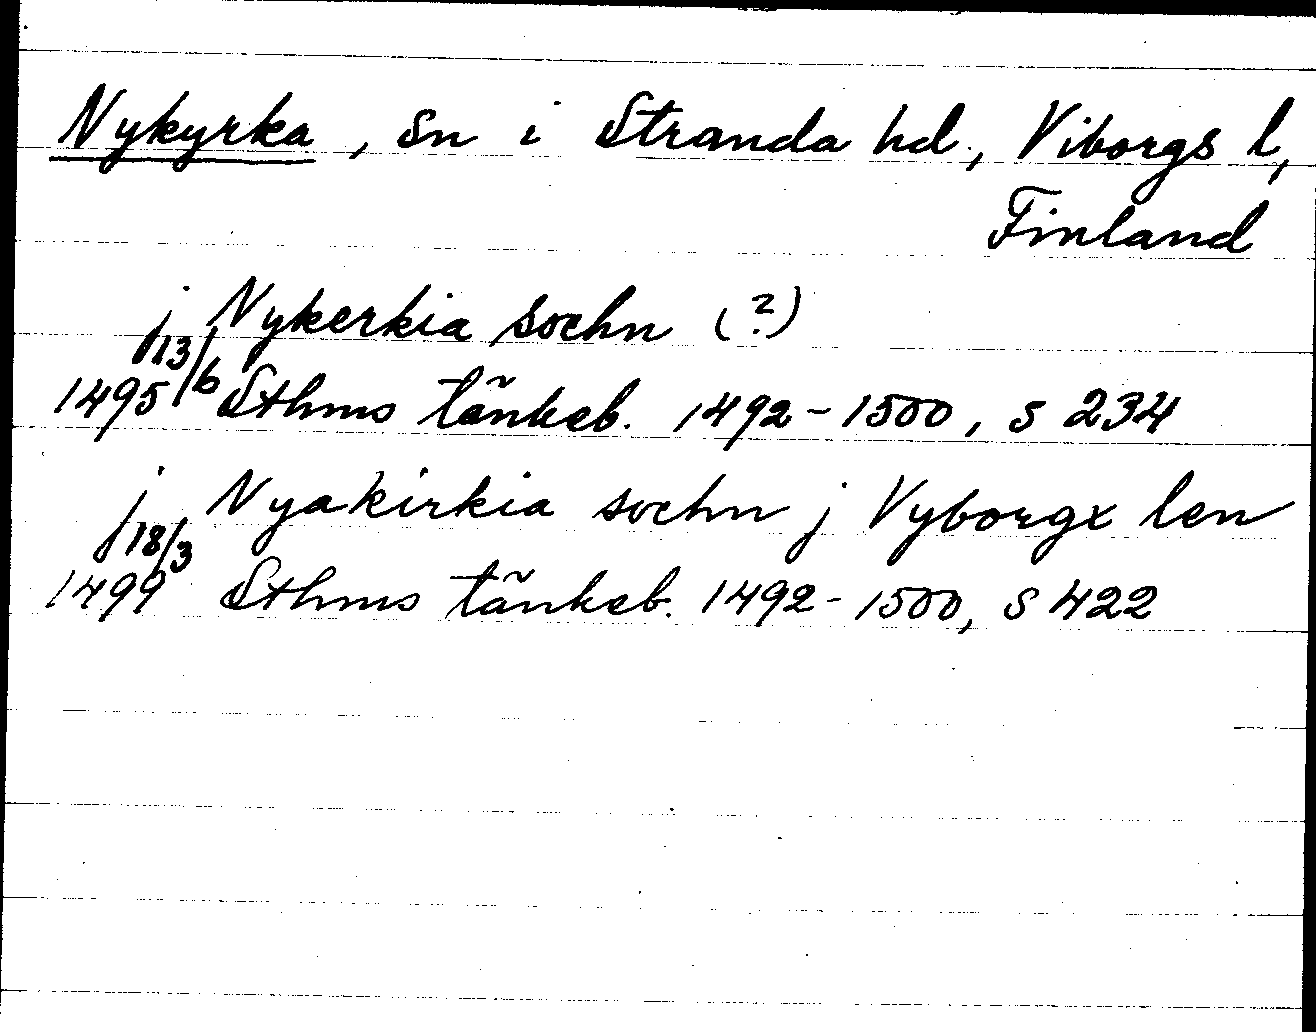 Nykyrka, Sn i Stranda hd., Viborgs l,
Finland
j Nykerkia sochn (?)
1495 13/6 Sthms tänkeb. 1492-1500, s 234
j Nyakirkia sochn j Vyborgx len
1499 18/3 Sthms tänkeb. 1492-1500, s 422